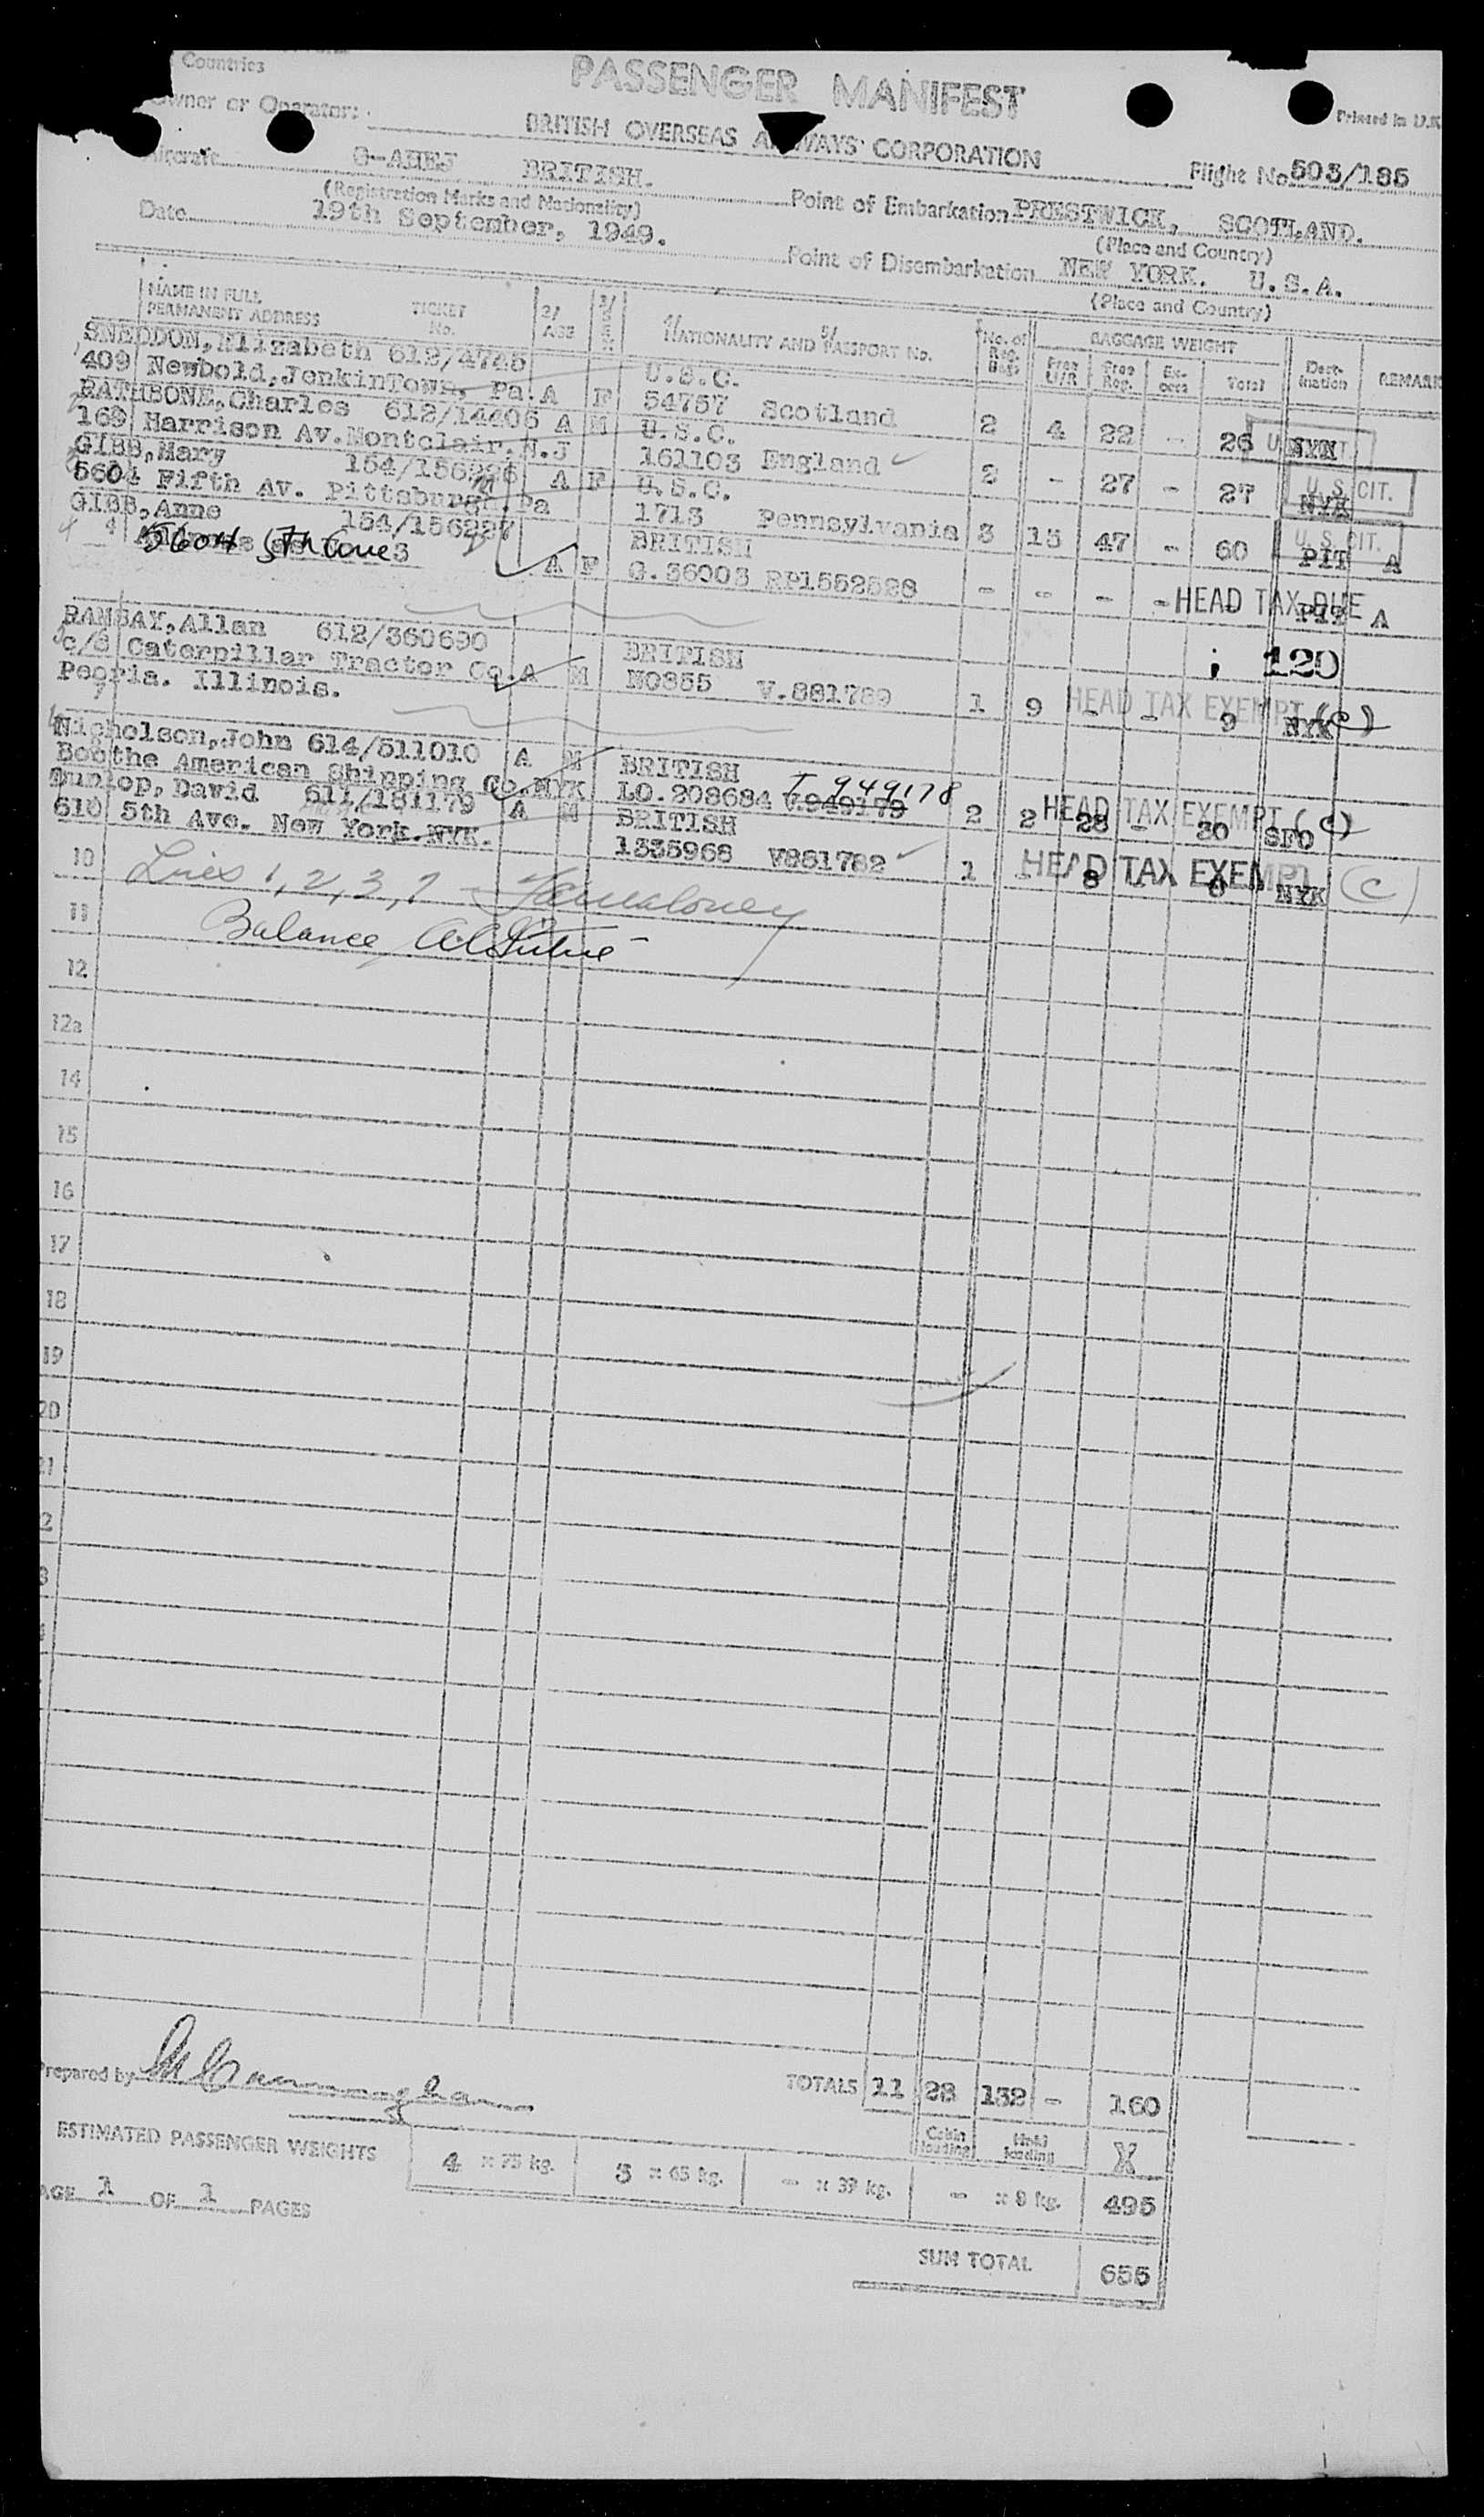 Countries
PASSENGER MANIFEST
Owner or Operator:
BRITISH OVERSEAS AIRWAYS CORPORATION
Printed in U.K.
Aircraft BRITISH.
Flight No. 503/185
(Registration Marks and Nationality)
Point of Embarkation PRESTWICK, SCOTLAND.
(Place and Country)
Date 19th September, 1949.
Point of Disembarkation NEW YORK. U.S.A.
(Place and Country)
NAME IN FULL
PERMANENT ADDRESS
TICKET No.
2/ AGE
3/ SEX
4/ NATIONALITY AND 5/ PASSPORT No.
No. of Reg. Bags
BAGGAGE WEIGHT
Free U/R Free Reg. Excess Total
Destination
REMARKS
SNEDDON, Elizabeth 619/4745 U.S.C.
409 Newbold, JenkinTown, Pa. A F 54757 Scotland 2 4 22 - 26 NYK
RATHBONE, Charles 612/14406 A M U.S.C.
169 Harrison Av. Montclair. N.J 161103 England 2 - 27 - 27 NYK U.S. CIT.
GIBB, Mary 154/156226 A F U.S.C.
5604 Fifth Av. Pittsburgh. Pa 1713 Pennsylvania 3 13 47 - 60 PIT A U.S. CIT.
GIBB, Anne 154/156227 BRITISH
4 5604 5th Ave A F G.36003 RP1552528 - - - - HEAD TAX DUE PIT A
RAMSAY, Allan 612/360690 BRITISH ; 120
c/o Caterpillar Tractor Co. A M NO355 V.881789 1 9 - - 9 NYK HEAD TAX EXEMPT (C)
Peoria. Illinois.
Nicholson, John 614/511010 A M BRITISH T 949178
Boothe American Shipping Co. NYK LO.208684 V.949179 2 2 28 - 30 SFO HEAD TAX EXEMPT (C)
Dunlop, David 611/181179 A M BRITISH
610 5th Ave. New York. NYK. 1335968 V881782 1 - 8 - 8 NYK HEAD TAX EXEMPT (C)
10 Lines 1, 2, 3, 7
11 Balance
12
12a
14
15
16
17
18
19
20
21
2
3
Prepared by
TOTALS 11 28 132 - 160
Cabin loading Hold loading X
ESTIMATED PASSENGER WEIGHTS 4 x 75 kg. 3 x 65 kg. - x 39 kg. - x 8 kg. 495
AGE 1 OF 1 PAGES
SUM TOTAL 655